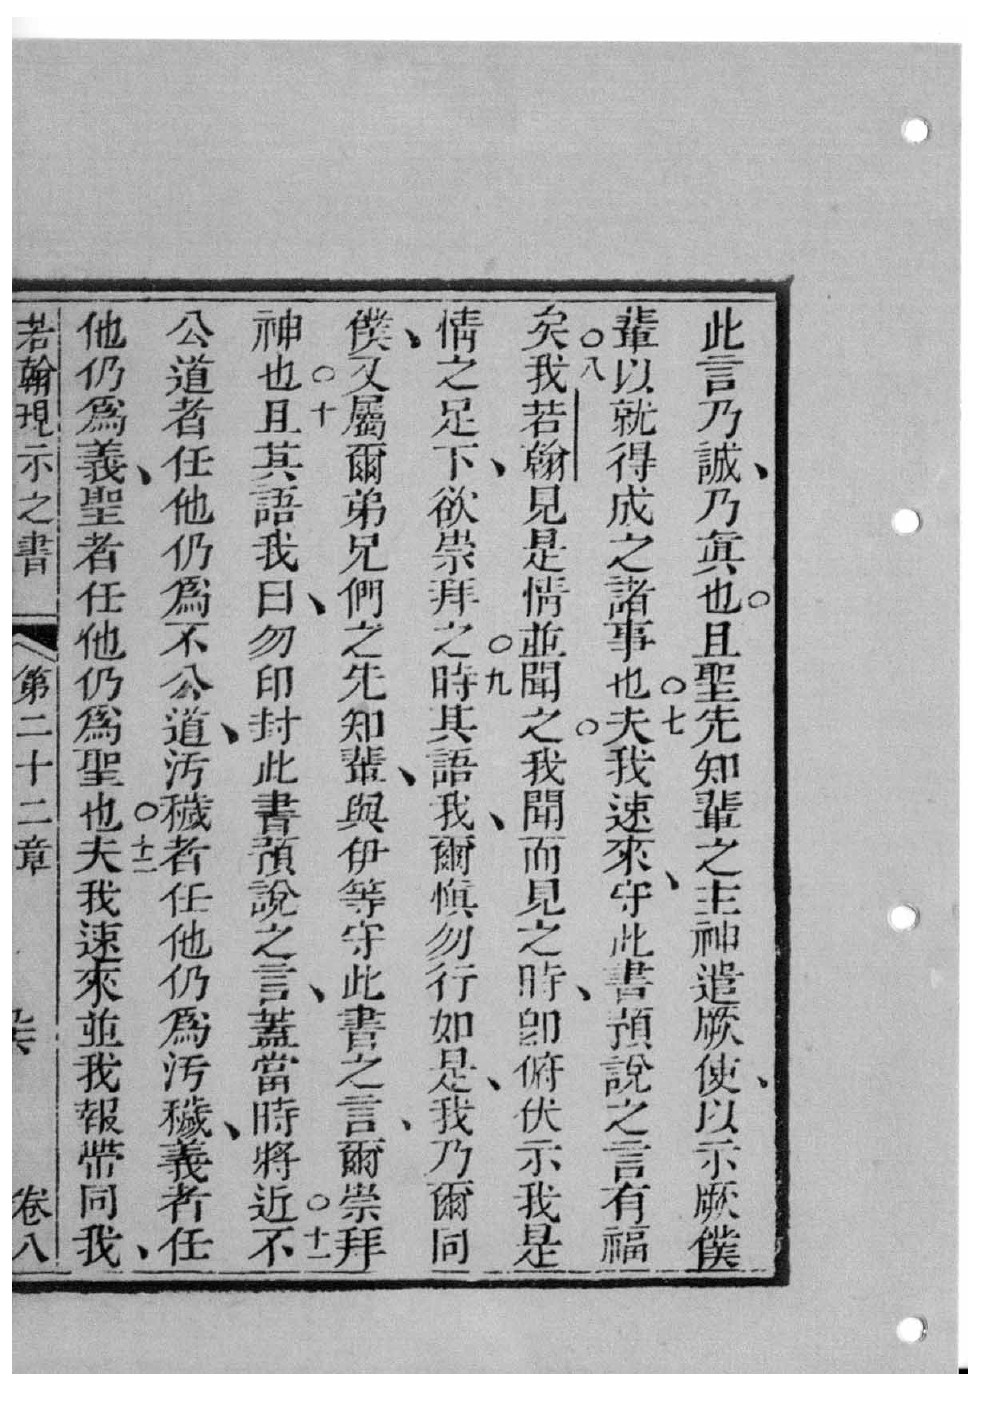 此言乃誠、乃眞也。且聖先知輩之主神遣厥使、以示厥僕
輩以就得成之諸事也。七夫我速來、守此書預說之言有福
矣。八我若翰見是情並聞之。我聞而見之時、卽俯伏示我是
情之足下、欲崇拜之。九時其語我、爾愼勿行如是、我乃爾同
僕、又屬爾弟兄們之先知輩、與伊等守此書之言、爾崇拜
神也。十且其語我曰、勿印封此書預說之言、蓋當時將近。十一不
公道者任他仍爲不公道、汚穢者任他仍爲汚穢、義者任
他仍爲義、聖者任他仍爲聖也。十二夫我速來並我報帶同我、
若翰現示之書 第二十二章 卷八